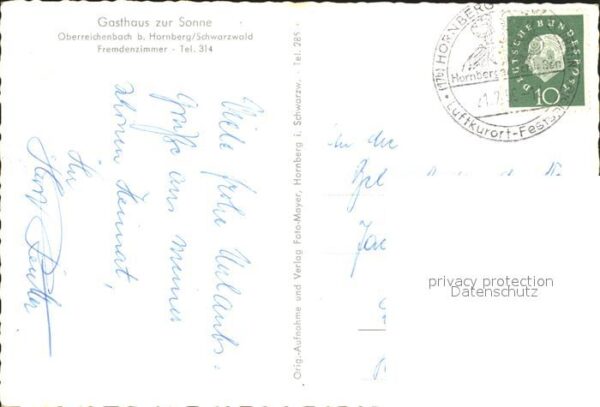 Gasthaus zur Sonne
Oberreichenbach b. Hornberg/Schwarzwald
Fremdenzimmer - Tel. 314
Viele frohe Urlaubs-
grüße aus meiner
schönen Heimat,
Ihr
Orig.-Aufnahme und Verlag Foto-Mayer, Hornberg i. Schwarzw. - Tel. 285
(176) HORNBERG
Hornberger Schießen
Luftkurort-Festsp
DEUTSCHE BUNDESPOST
10
An die
privacy protection
Datenschutz